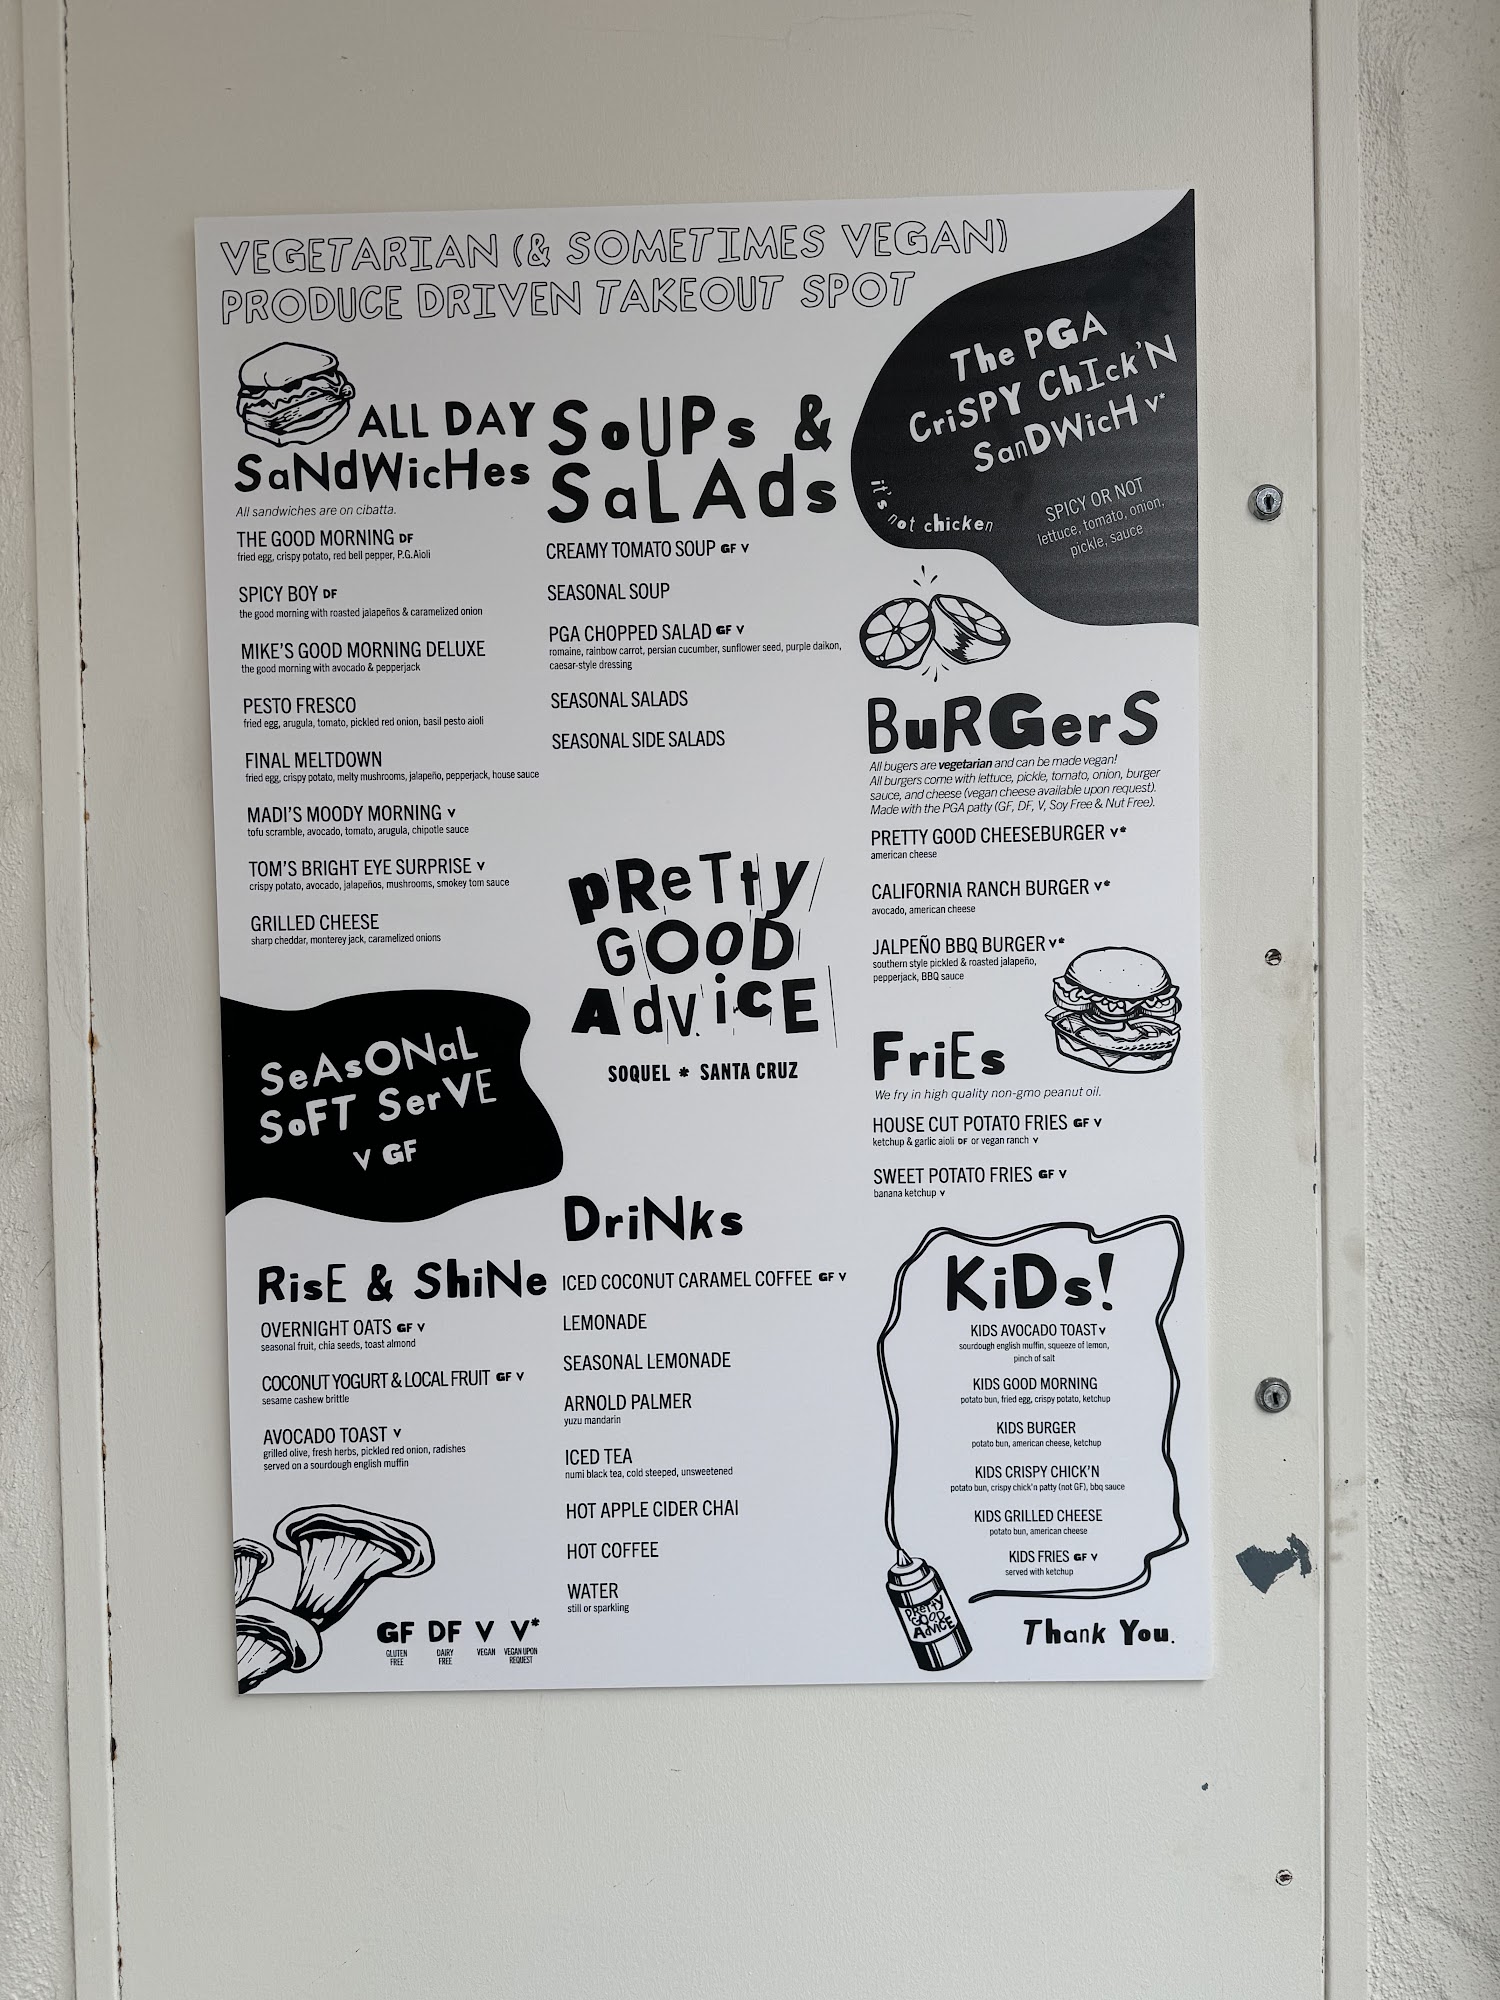 VEGETARIAN (& SOMETIMES VEGAN)
PRODUCE DRIVEN TAKEOUT SPOT
ALL DAY
SaNdWicHes
All sandwiches are on cibatta.
THE GOOD MORNING DF
fried egg, crispy potato, red bell pepper, P.G.Aioli
SPICY BOY DF
the good morning with roasted jalapeños & caramelized onion
MIKE'S GOOD MORNING DELUXE
the good morning with avocado & pepperjack
PESTO FRESCO
fried egg, arugula, tomato, pickled red onion, basil pesto aioli
FINAL MELTDOWN
fried egg, crispy potato, melty mushrooms, jalapeño, pepperjack, house sauce
MADI'S MOODY MORNING V
tofu scramble, avocado, tomato, arugula, chipotle sauce
TOM'S BRIGHT EYE SURPRISE V
crispy potato, avocado, jalapeños, mushrooms, smokey tom sauce
GRILLED CHEESE
sharp cheddar, monterey jack, caramelized onions
SeAsONaL
SoFT SerVE
V GF
RisE & ShiNe
OVERNIGHT OATS GF V
seasonal fruit, chia seeds, toast almond
COCONUT YOGURT & LOCAL FRUIT GF V
sesame cashew brittle
AVOCADO TOAST V
grilled olive, fresh herbs, pickled red onion, radishes
served on a sourdough english muffin
GF DF V V*
GLUTEN FREE DAIRY FREE VEGAN VEGAN UPON REQUEST
SoUPs &
SaLAds
CREAMY TOMATO SOUP GF V
SEASONAL SOUP
PGA CHOPPED SALAD GF V
romaine, rainbow carrot, persian cucumber, sunflower seed, purple daikon,
caesar-style dressing
SEASONAL SALADS
SEASONAL SIDE SALADS
pReTty
GOOD
AdvicE
SOQUEL * SANTA CRUZ
DriNks
ICED COCONUT CARAMEL COFFEE GF V
LEMONADE
SEASONAL LEMONADE
ARNOLD PALMER
yuzu mandarin
ICED TEA
numi black tea, cold steeped, unsweetened
HOT APPLE CIDER CHAI
HOT COFFEE
WATER
still or sparkling
The PGA
CriSPY ChIck'N
SanDWicH V*
it's not chicken
SPICY OR NOT
lettuce, tomato, onion,
pickle, sauce
BuRGerS
All bugers are vegetarian and can be made vegan!
All burgers come with lettuce, pickle, tomato, onion, burger
sauce, and cheese (vegan cheese available upon request).
Made with the PGA patty (GF, DF, V, Soy Free & Nut Free).
PRETTY GOOD CHEESEBURGER V*
american cheese
CALIFORNIA RANCH BURGER V*
avocado, american cheese
JALPEÑO BBQ BURGER V*
southern style pickled & roasted jalapeño,
pepperjack, BBQ sauce
FriEs
We fry in high quality non-gmo peanut oil.
HOUSE CUT POTATO FRIES GF V
ketchup & garlic aioli DF or vegan ranch V
SWEET POTATO FRIES GF V
banana ketchup V
KiDs!
KIDS AVOCADO TOAST V
sourdough english muffin, squeeze of lemon,
pinch of salt
KIDS GOOD MORNING
potato bun, fried egg, crispy potato, ketchup
KIDS BURGER
potato bun, american cheese, ketchup
KIDS CRISPY CHICK'N
potato bun, crispy chick'n patty (not GF), bbq sauce
KIDS GRILLED CHEESE
potato bun, american cheese
KIDS FRIES GF V
served with ketchup
PRetty
GOOD
AdvicE
Thank You.